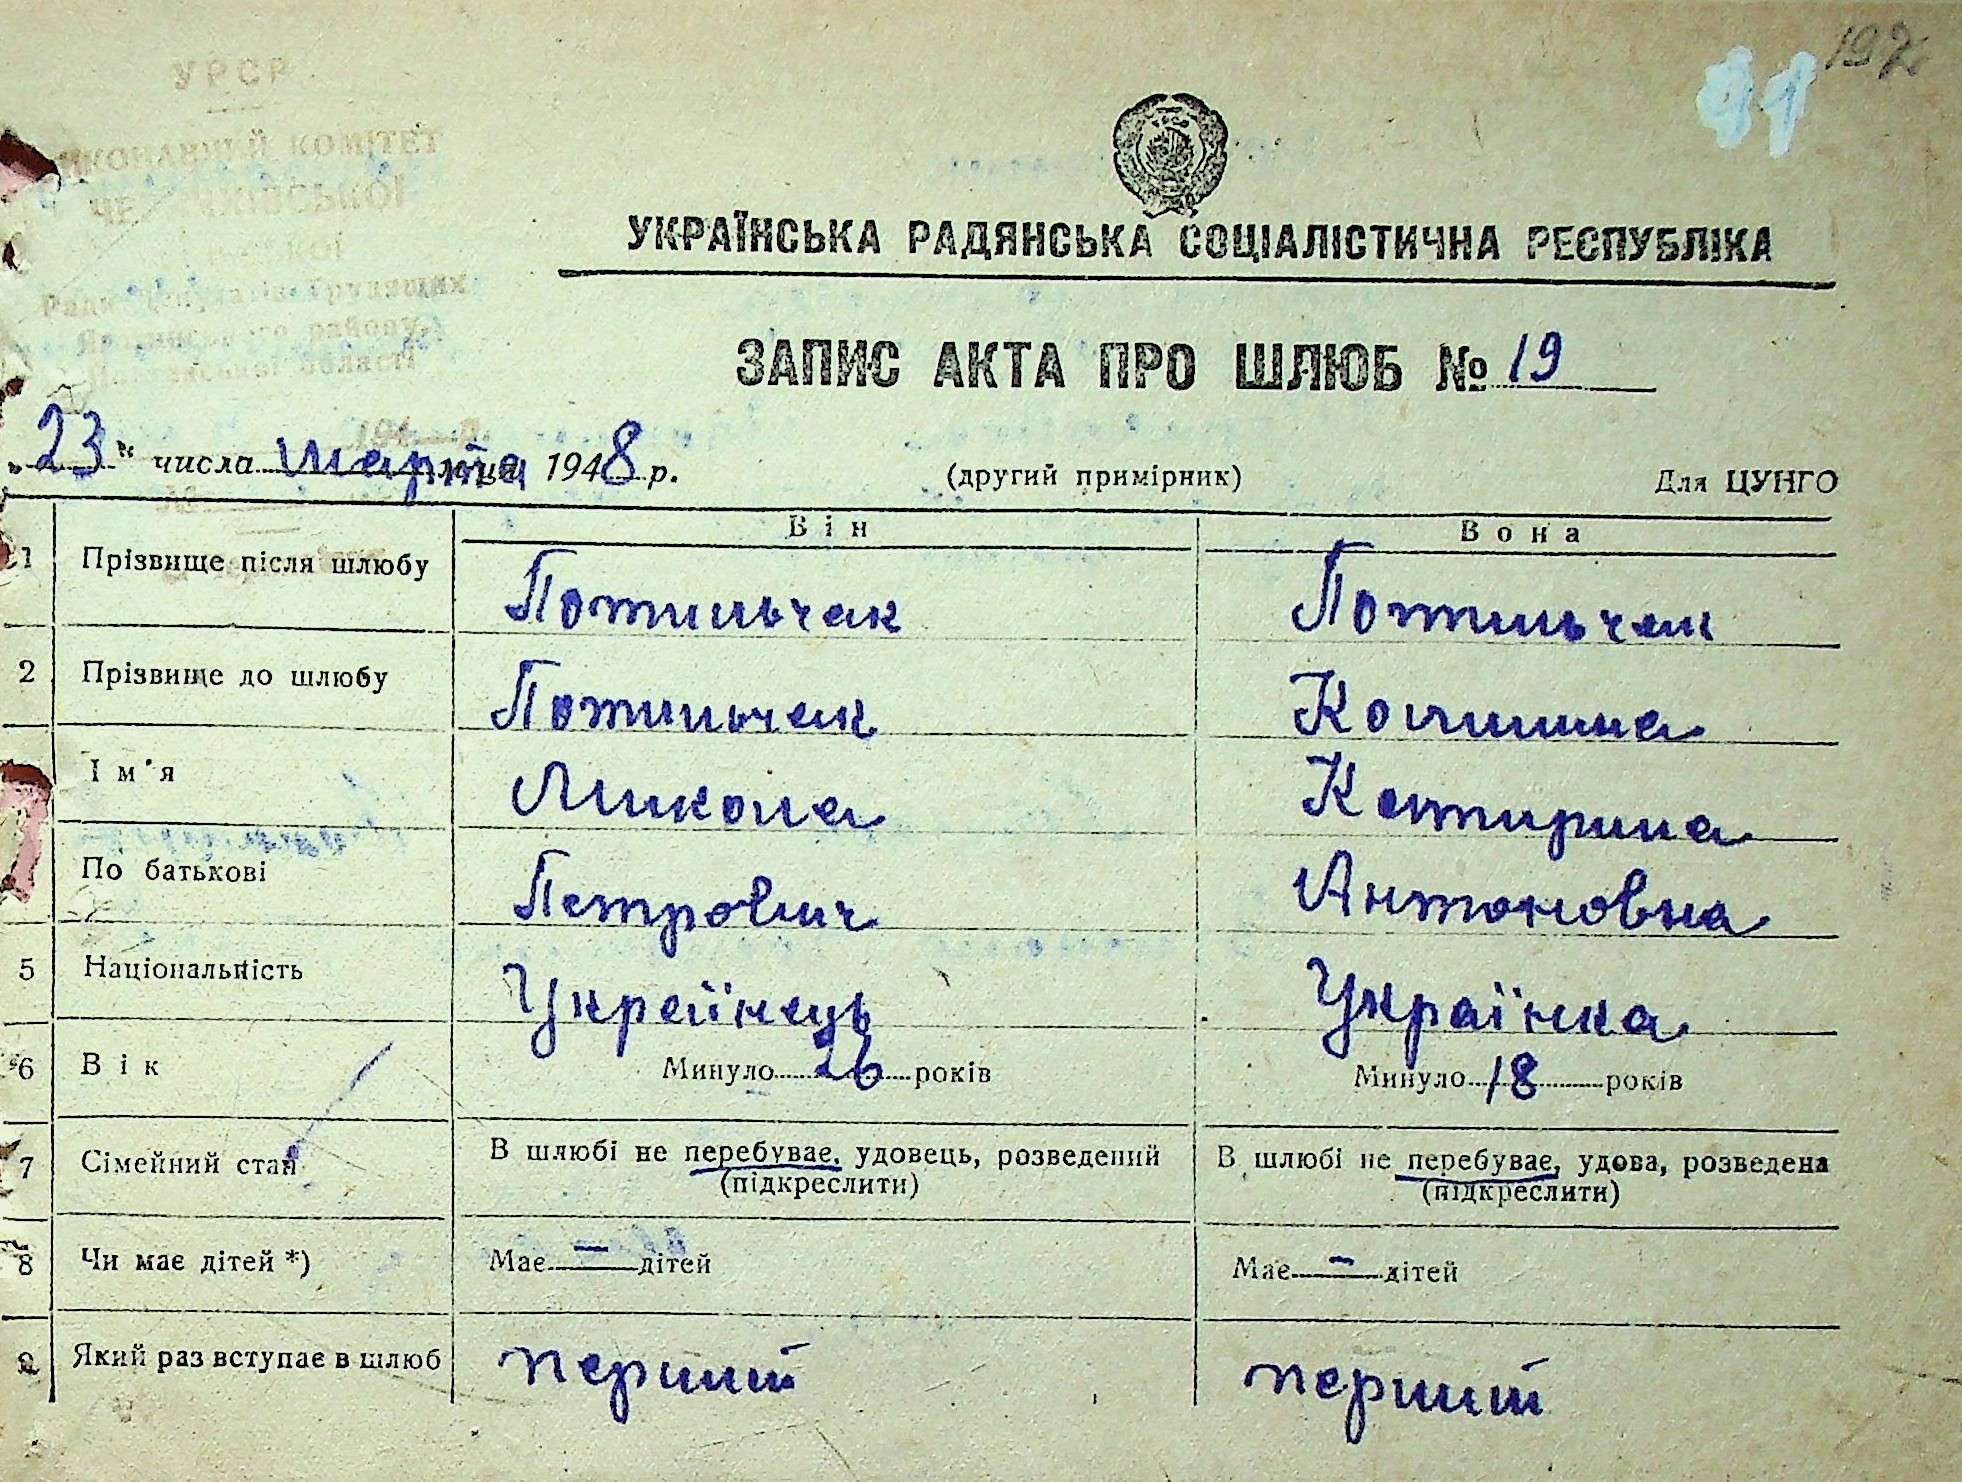 192
91
УРСР
ВИКОНАВЧИЙ КОМІТЕТ
Ради депутатів трудящих
району,
Полтавської області
УКРАЇНСЬКА РАДЯНСЬКА СОЦІАЛІСТИЧНА РЕСПУБЛІКА
ЗАПИС АКТА ПРО ШЛЮБ № 19
„23“ числа марта м-ця 1948 р. (другий примірник) Для ЦУНГО
Він Вона
1 Прізвище після шлюбу Потильчак Потильчак
2 Прізвище до шлюбу Потильчак
Ім'я Микола Катирина
По батькові Петрович Антоновна
5 Національність Українець Українка
6 Вік Минуло 26 років Минуло 18 років
7 Сімейний стан В шлюбі не перебуває, удовець, розведений В шлюбі не перебуває, удова, розведена
(підкреслити) (підкреслити)
8 Чи має дітей *) Має — дітей Має — дітей
9 Який раз вступає в шлюб перший перший